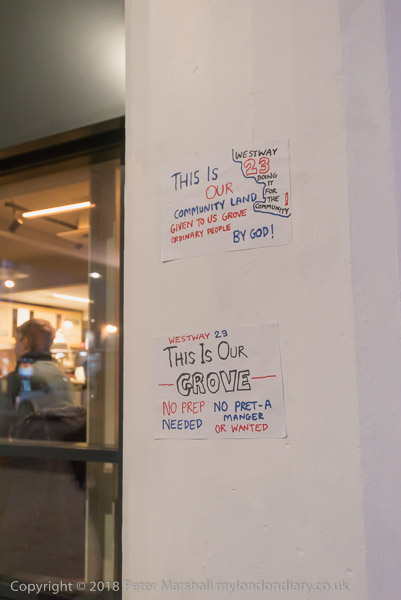 THIS IS
OUR
COMMUNITY LAND
GIVEN TO US GROVE
ORDINARY PEOPLE
BY GOD!
WESTWAY
23
DOING
IT
FOR
THE
COMMUNITY!
WESTWAY 23
THIS IS OUR
GROVE
NO PREP
NEEDED
NO PRET-A
MANGER
OR WANTED
Copyright © 2018 Peter Marshall mylondondiary.co.uk